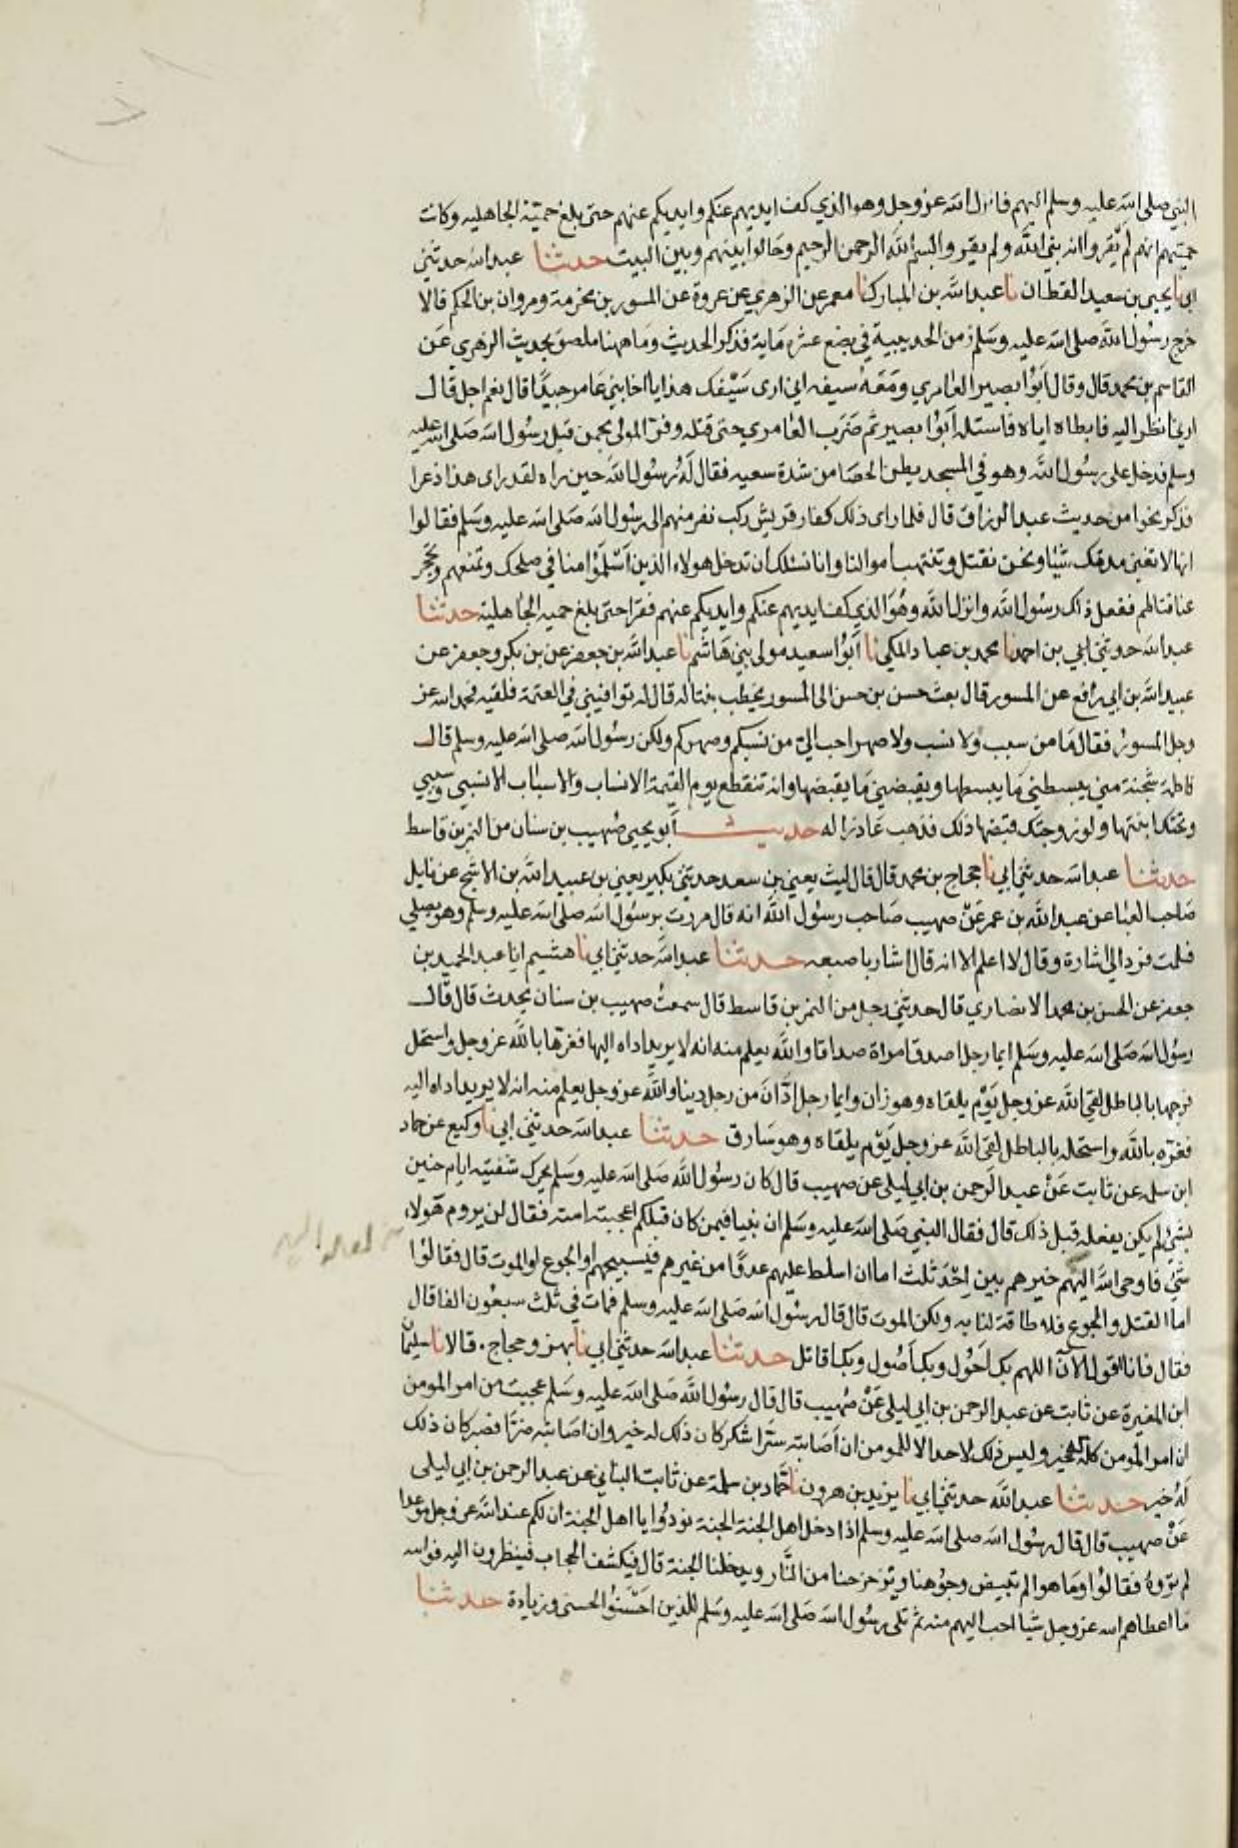 النبي صلى الله عليه وسلم اليهم فانزل الله عز وجل وهو الذي كف ايديهم عنكم وايديكم عنهم حتى بلغ حمية الجاهليه وكانت
حميتهم انهم لم يقروا انه نبي الله ولم يقروا بسم الله الرحمن الرحيم وحالوا بينهم وبين البيت حدثنا عبد الله حدثني
ابي نا يحيى بن سعيد القطان نا عبد الله بن المبارك نا معمر عن الزهري عن عروة عن المسور بن مخرمة ومروان بن الحكم قالا
خرج رسول الله صلى الله عليه وسلم زمن الحديبية في بضع عشرة ماية فذكر الحديث وما ههنا ملصق بحديث الزهري عن
القاسم بن محمد قال وقال ابوا بصير العامري ومعه سيفه اني ارى سيفك هذا يا اخا بني عامر جيدا قال نعم اجل قال
ارني انظر اليه فابطاه اياه فاستله ابوا بصير ثم ضرب العامري حتى قتله وفر المولى يجمز قبل رسول الله صلى الله عليه
وسلم فدخل على رسول الله وهو في المسجد يطن الحصا من شدة سعيه فقال له رسول الله حين راه لقد راى هذا ذعرا
فذكر نحوا من حديث عبد الرزاق قال فلما راى ذلك كفار قريش ركب نفر منهم الى رسول الله صلى الله عليه وسلم فقالوا
انها لا تغني مدتك شيا ونحن نقتل وتنتهب اموالنا وانا نسئلك ان تدخل هولاء الذين اسلموا منا في صلحك وتمنعهم وتحجز
عنا قتالهم ففعل ذلك رسول الله وانزل الله وهو الذي كف ايديهم عنكم وايديكم عنهم فقرا حتى بلغ حميه الجاهلية حدثنا
عبد الله حدثني ابي بن احمد نا محمد بن عباد المكي نا ابوا سعيد مولى بني هاشم نا عبد الله بن جعفر عن بن بكر وجعفر عن
عبيد الله بن ابي رافع عن المسور قال بعث حسن بن حسن الى المسور يخطب بنتا له قال له توافيني في العتمة فلقيه فحمد الله عز
وجل المسور فقال ما من سبب ولا نسب ولا صهر احب الي من نسبكم وصهركم ولكن رسول الله صلى الله عليه وسلم قال
فاطمة شجنة مني يبسطني ما يبسطها ويقبضني ما يقبضها وانه تنقطع يوم القيمة الانساب والاسباب الا نسبي وسببي
وتحتك ابنتها ولو زوجتك قبضها ذلك فذهب عاذرا له حديث ابو يحيى صهيب بن سنان من النمر بن قاسط
حدثنا عبد الله حدثني ابي نا حجاج بن محمد قال قال ليث يعني بن سعد حدثني بكير يعني بن عبد الله بن الاشج عن نابل
صاحب العبا عن عبد الله بن عمر عن صهيب صاحب رسول الله انه قال مررت برسول الله صلى الله عليه وسلم وهو يصلي
فسلمت فرد الي اشارة وقال لا اعلم الا انه قال اشار باصبعه حدثنا عبد الله حدثني ابي نا هشيم انا عبد الحميد بن
جعفر عن الحسن بن محمد الانصاري قال حدثني رجل من النمر بن قاسط قال سمعت صهيب بن سنان يحدث قال قال
رسول الله صلى الله عليه وسلم ايما رجل اصدق امراة صداقا والله يعلم منه انه لا يريد اداه اليها فغرها بالله عز وجل واستحل
فرجها بالباطل لقي الله عز وجل يوم يلقاه وهو زان وايما رجل ادان من رجل دينا والله عز وجل يعلم منه انه لا يريد اداه اليه
فغره بالله واستحله بالباطل لقى الله عز وجل يوم يلقاه وهو سارق حدثنا عبد الله حدثني ابي نا وكيع عن حماد
ابن سلمه عن ثابت عن عبد الرحمن بن ابي ليلى عن صهيب قال كان رسول الله صلى الله عليه وسلم يحرك شفتيه ايام حنين
بشئ لم يكن يفعله قبل ذلك قال فقال النبي صلى الله عليه وسلم ان نبيا فيمن كان قبلكم اعجبته امته فقال لن يروم هولاء
شئ فاوحى الله اليهم خيرهم بين احد ثلث اما ان اسلط عليهم عدوا من غيرهم فيستبيحهم او الجوع او الموت قال فقالوا
اما القتل والجوع فلا طاقة لنا به ولكن الموت قال قال رسول الله صلى الله عليه وسلم فمات في ثلث سبعون الفا قال
فقال فانا اقول الان اللهم بك احول وبك اصول وبك اقاتل حدثنا عبد الله حدثني ابي نا بهز وحجاج قالا نا سليمان
ابن المغيرة عن ثابت عن عبد الرحمن بن ابي ليلى عن صهيب قال قال رسول الله صلى الله عليه وسلم عجبت من امر المومن
ان امر المومن كله خير وليس ذلك لاحد الا للمومن ان اصابته سرا شكر كان ذلك له خير وان اصابته ضرا فصبر كان ذلك
له خير حدثنا عبد الله حدثني ابي نا يزيد بن هرون نا حماد بن سلمة عن ثابت البناني عن عبد الرحمن بن ابي ليلى
عن صهيب قال قال رسول الله صلى الله عليه وسلم اذا دخل اهل الجنة الجنة نودوا يا اهل الجنة ان لكم عند الله عز وجل موعدا
لم تروه فقالوا وما هو الم تبيض وجوهنا وتزحزحنا من النار وتدخلنا الجنة قال فيكشف الحجاب فينظرون اليه فوالله
ما اعطاهم الله عز وجل شيا احب اليهم منه ثم تلى رسول الله صلى الله عليه وسلم للذين احسنوا الحسنى وزيادة حدثنا